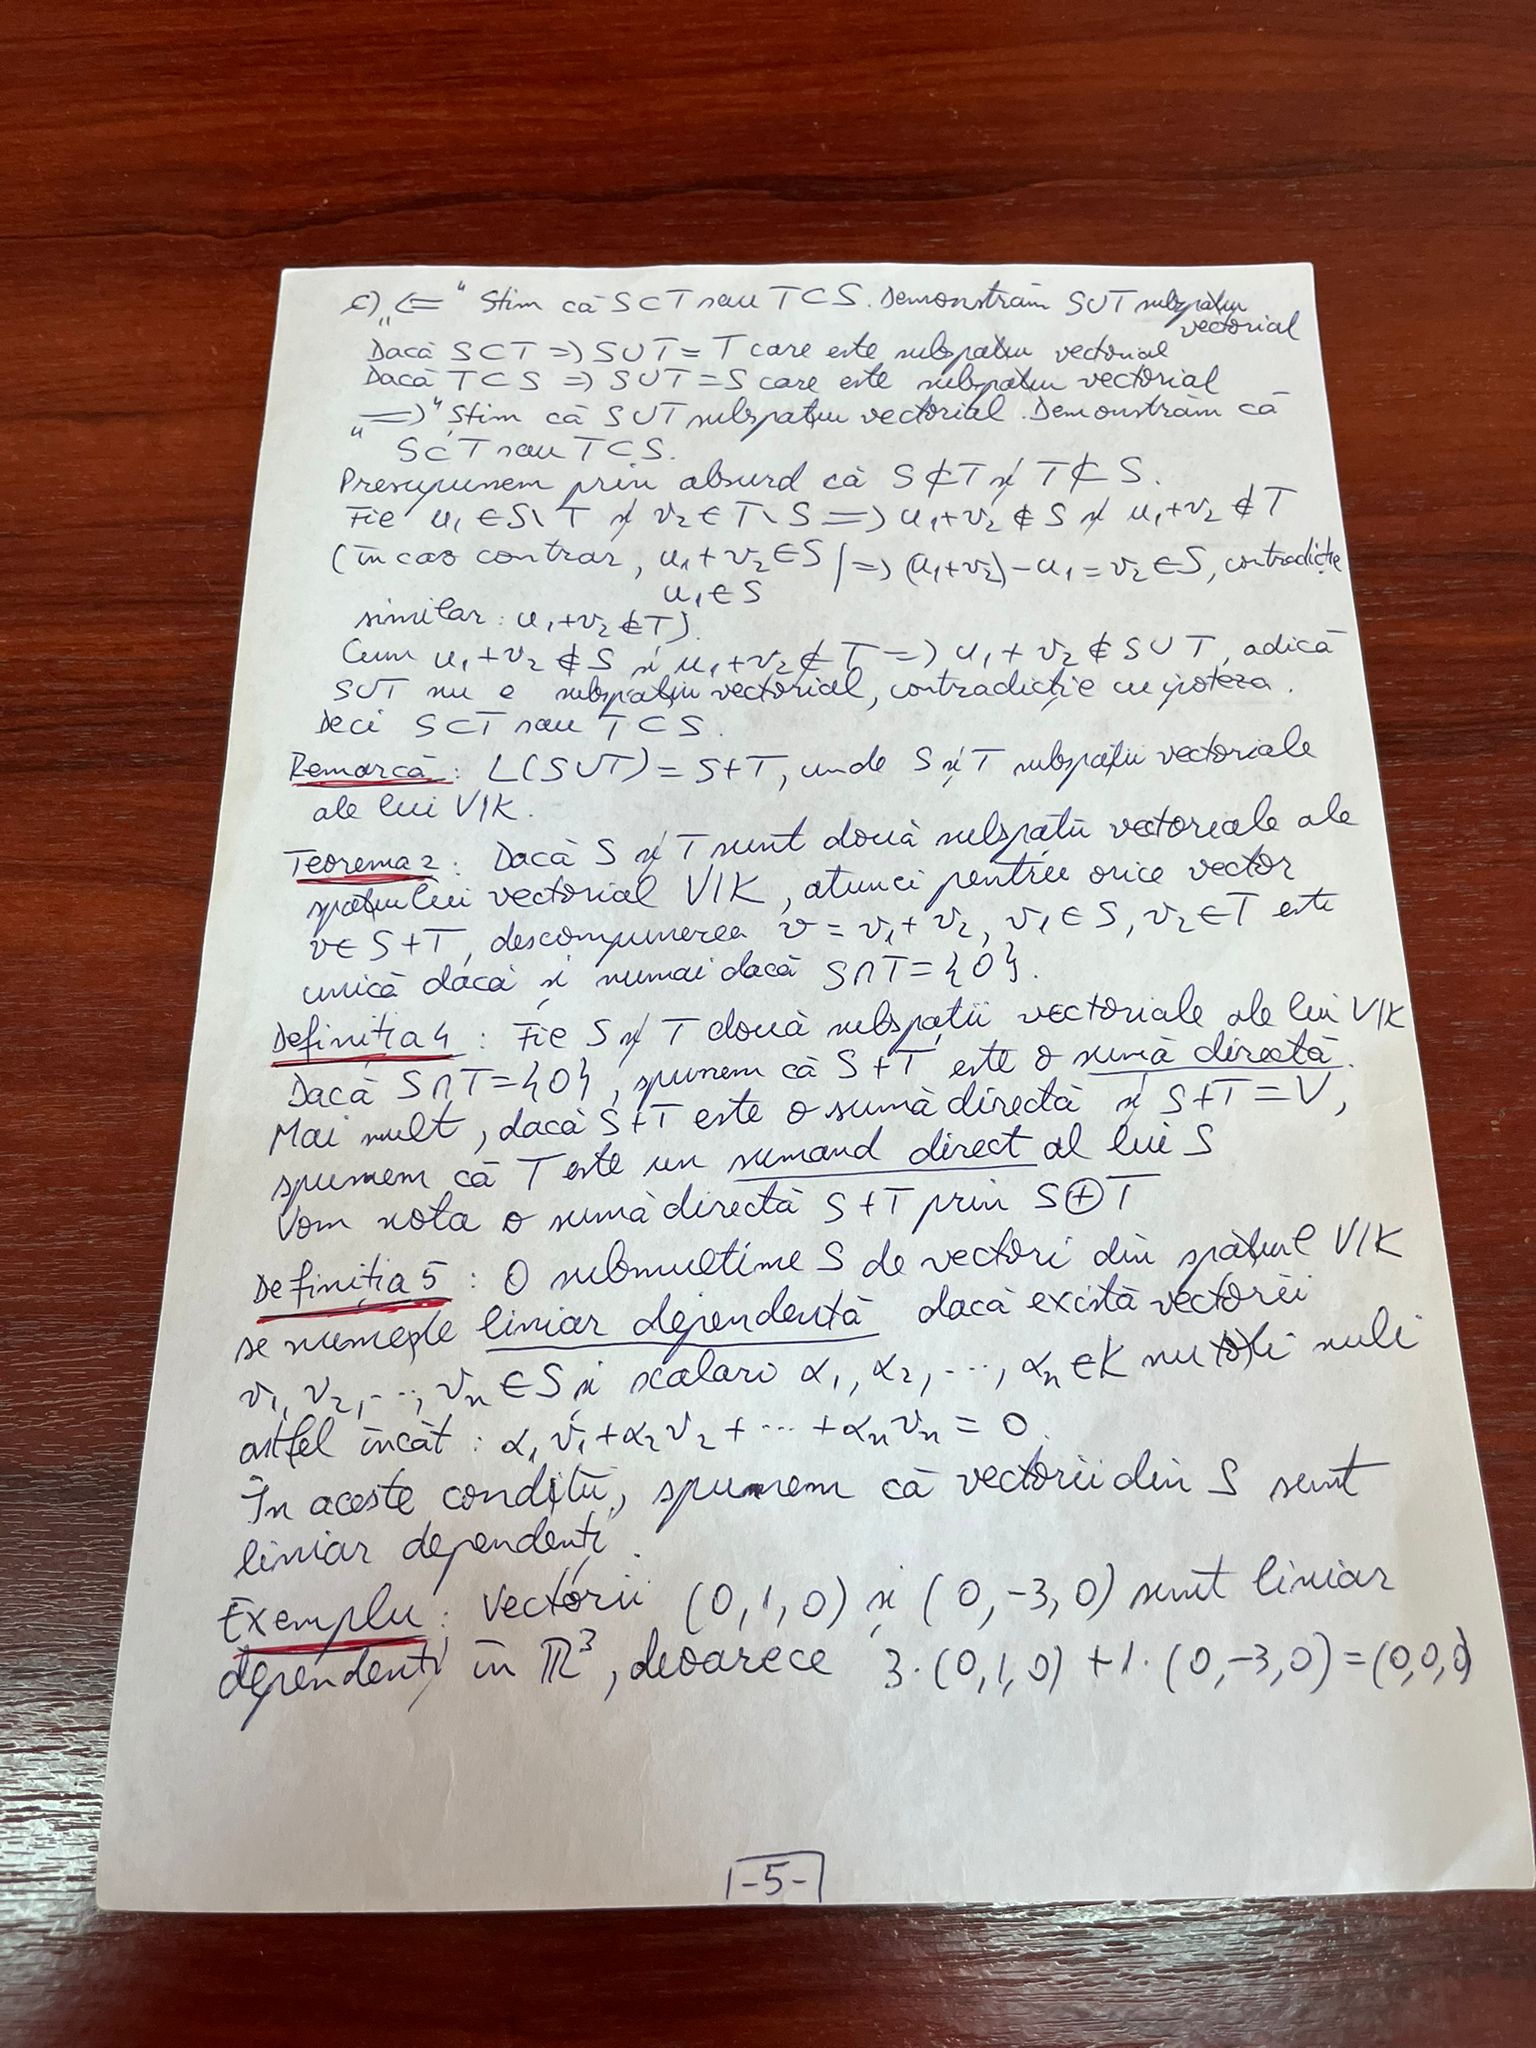 c) „⇐" Știm că S⊂T sau T⊂S. Demonstrăm S∪T subspațiu
vectorial
Dacă S⊂T => S∪T = T care este subspațiu vectorial
Dacă T⊂S => S∪T = S care este subspațiu vectorial
„=>" Știm că S∪T subspațiu vectorial. Demonstrăm că
S⊂T sau T⊂S.
Presupunem prin absurd că S⊄T și T⊄S.
Fie u₁∈S\T și v₂∈T\S => u₁+v₂∉S și u₁+v₂∉T
(în caz contrar, u₁+v₂∈S | => (u₁+v₂)-u₁=v₂∈S, contradicție
u₁∈S
similar: u₁+v₂∉T).
Cum u₁+v₂∉S și u₁+v₂∉T => u₁+v₂∉S∪T, adică
S∪T nu e subspațiu vectorial, contradicție cu ipoteza.
Deci S⊂T sau T⊂S.
Remarcă: L(S∪T)=S+T, unde S și T subspații vectoriale
ale lui V/K.
Teorema 2: Dacă S și T sunt două subspații vectoriale ale
spațiului vectorial V/K, atunci pentru orice vector
v∈S+T, descompunerea v=v₁+v₂, v₁∈S, v₂∈T este
unică dacă și numai dacă S∩T={0}.
Definiția 4: Fie S și T două subspații vectoriale ale lui V/K
Dacă S∩T={0}, spunem că S+T este o sumă directă.
Mai mult, dacă S+T este o sumă directă și S+T=V,
spunem că T este un sumand direct al lui S
Vom nota o sumă directă S+T prin S⊕T
Definiția 5: O submulțime S de vectori din spațiul V/K
se numește liniar dependentă dacă există vectorii
v₁, v₂, ..., vₙ∈S și scalari α₁, α₂, ..., αₙ∈K nu toți nuli
astfel încât: α₁v₁+α₂v₂+...+αₙvₙ=0.
În aceste condiții, spunem că vectorii din S sunt
liniar dependenți.
Exemplu: Vectorii (0,1,0) și (0,-3,0) sunt liniar
dependenți în ℝ³, deoarece 3·(0,1,0)+1·(0,-3,0)=(0,0,0)
-5-